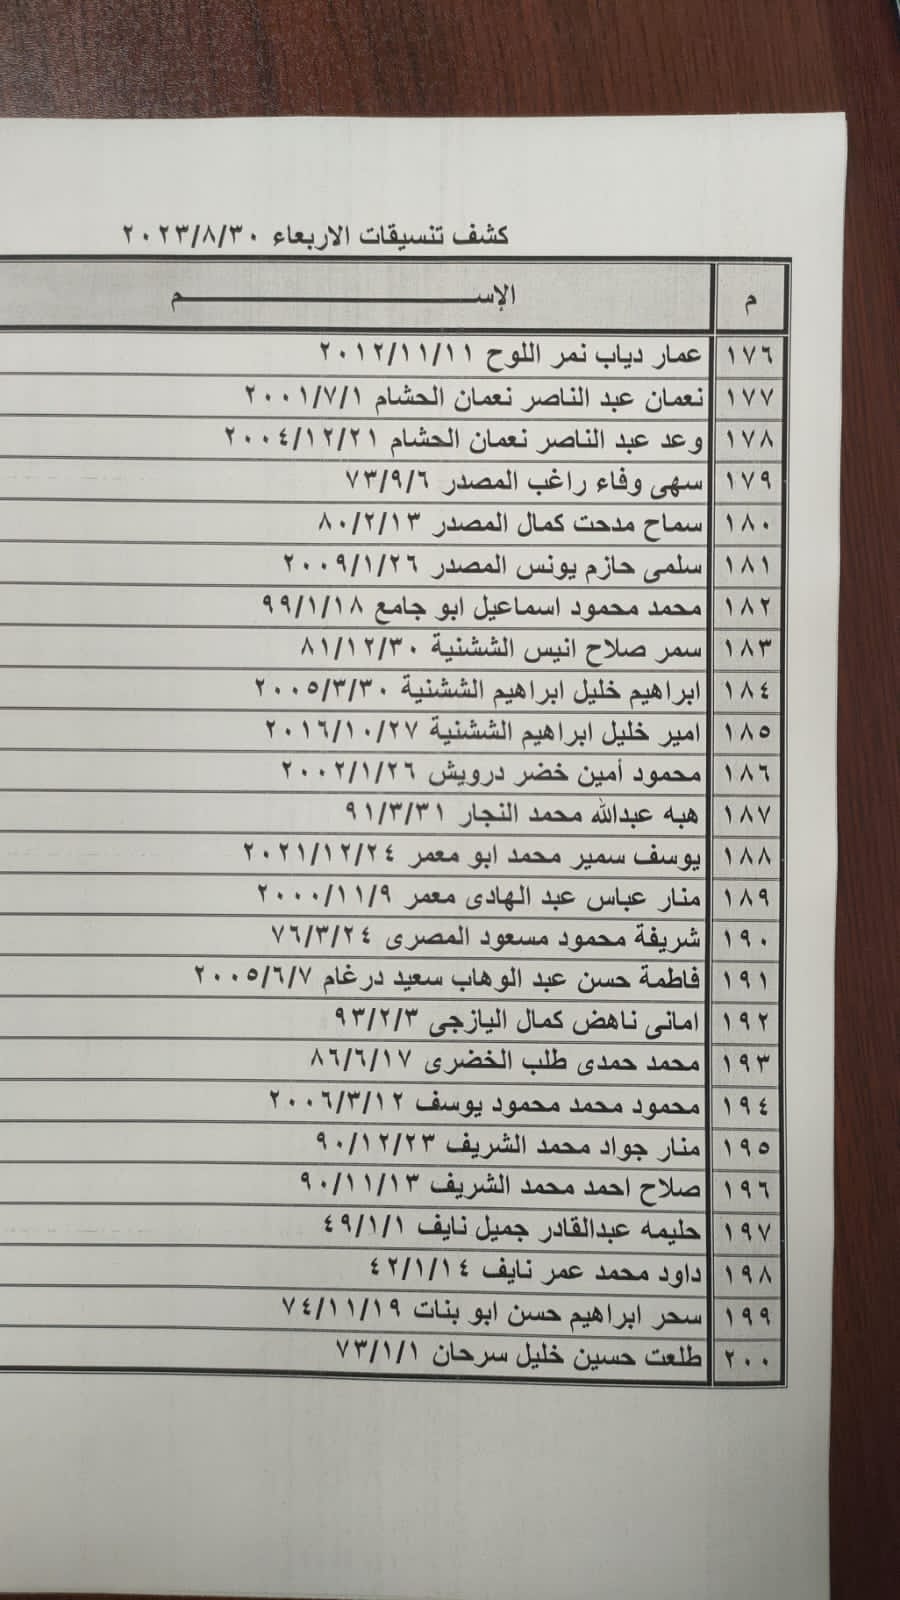 كشف تنسيقات الاربعاء ٢٠٢٣/٨/٣٠
م الإســـــــــــــــــــــــــم
١٧٦ عمار دياب نمر اللوح ٢٠١٢/١١/١١
١٧٧ نعمان عبد الناصر نعمان الحشام ٢٠٠١/٧/١
١٧٨ وعد عبد الناصر نعمان الحشام ٢٠٠٤/١٢/٢١
١٧٩ سهى وفاء راغب المصدر ٧٣/٩/٦
١٨٠ سماح مدحت كمال المصدر ٨٠/٢/١٣
١٨١ سلمى حازم يونس المصدر ٢٠٠٩/١/٢٦
١٨٢ محمد محمود اسماعيل ابو جامع ٩٩/١/١٨
١٨٣ سمر صلاح انيس الششنية ٨١/١٢/٣٠
١٨٤ ابراهيم خليل ابراهيم الششنية ٢٠٠٥/٣/٣٠
١٨٥ امير خليل ابراهيم الششنية ٢٠١٦/١٠/٢٧
١٨٦ محمود أمين خضر درويش ٢٠٠٢/١/٢٦
١٨٧ هبه عبدالله محمد النجار ٩١/٣/٣١
١٨٨ يوسف سمير محمد ابو معمر ٢٠٢١/١٢/٢٤
١٨٩ منار عباس عبد الهادى معمر ٢٠٠٠/١١/٩
١٩٠ شريفة محمود مسعود المصرى ٧٦/٣/٢٤
١٩١ فاطمة حسن عبد الوهاب سعيد درغام ٢٠٠٥/٦/٧
١٩٢ امانى ناهض كمال اليازجى ٩٣/٢/٣
١٩٣ محمد حمدى طلب الخضرى ٨٦/٦/١٧
١٩٤ محمود محمد محمود يوسف ٢٠٠٦/٣/١٢
١٩٥ منار جواد محمد الشريف ٩٠/١٢/٢٣
١٩٦ صلاح احمد محمد الشريف ٩٠/١١/١٣
١٩٧ حليمه عبدالقادر جميل نايف ٤٩/١/١
١٩٨ داود محمد عمر نايف ٤٢/١/١٤
١٩٩ سحر ابراهيم حسن ابو بنات ٧٤/١١/١٩
٢٠٠ طلعت حسين خليل سرحان ٧٣/١/١